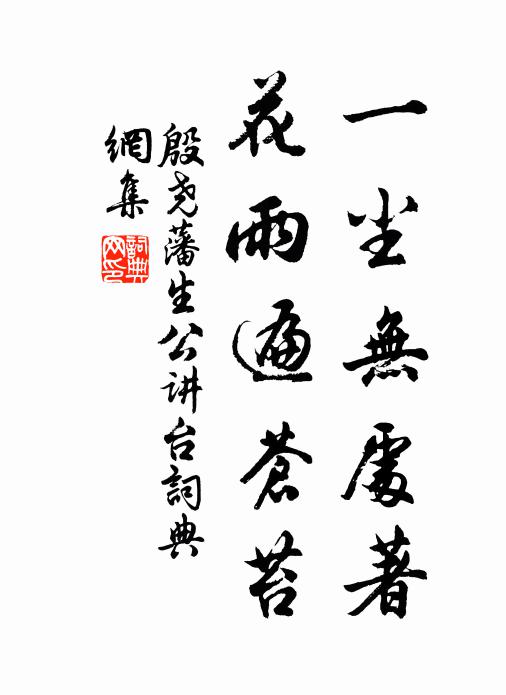 一尘無處著
花雨遍蒼苔
殷尧藩生公讲台詞典
網集
詞典
网印